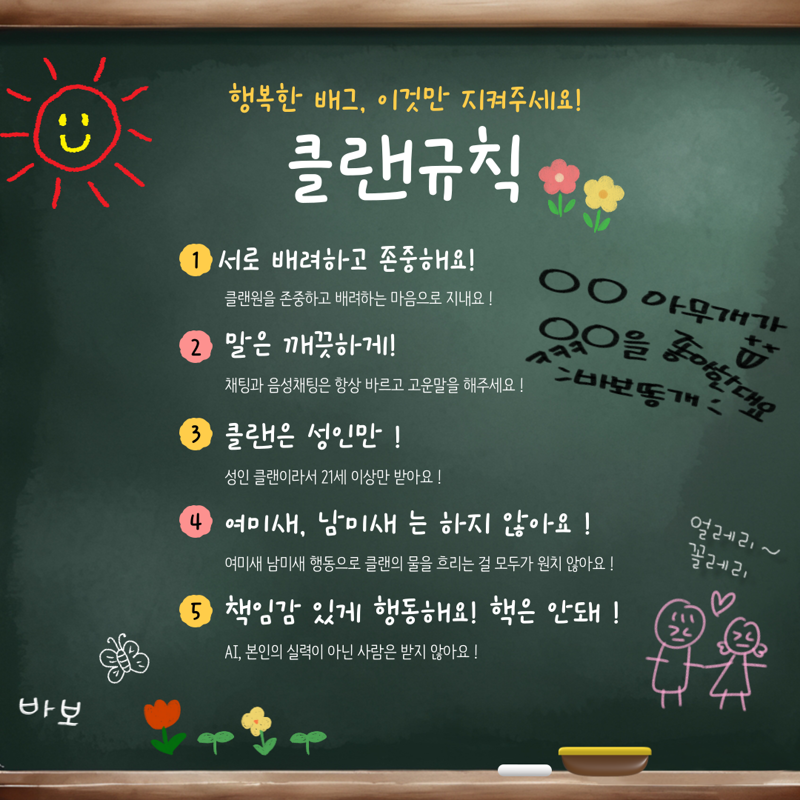 행복한 배그, 이것만 지켜주세요!
클랜규칙
1 서로 배려하고 존중해요!
클랜원을 존중하고 배려하는 마음으로 지내요 !
2 말은 깨끗하게!
채팅과 음성채팅은 항상 바르고 고운말을 해주세요 !
3 클랜은 성인만 !
성인 클랜이라서 21세 이상만 받아요 !
4 여미새, 남미새 는 하지 않아요 !
여미새 남미새 행동으로 클랜의 물을 흐리는 걸 모두가 원치 않아요 !
5 책임감 있게 행동해요! 핵은 안돼 !
AI, 본인의 실력이 아닌 사람은 받지 않아요 !
○○ 아무개가
○○을 좋아한대요
ㅋㅋㅋ
바보똥개
얼레리~
꼴레리
바보